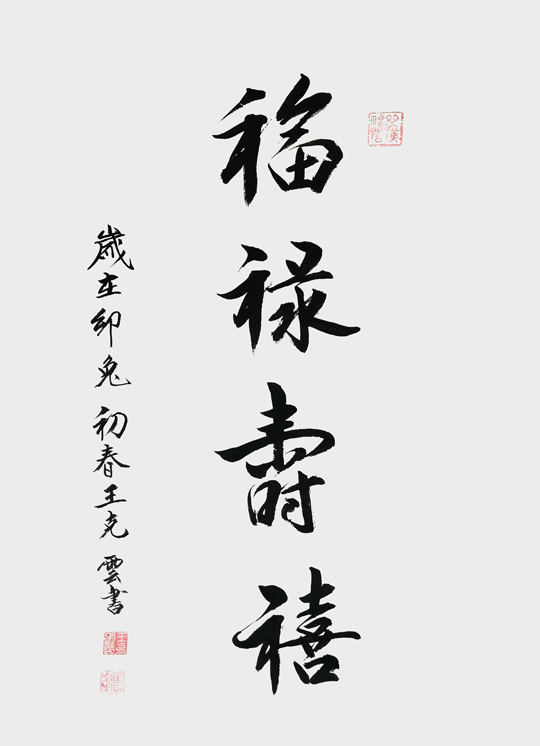 福禄壽禧
歲在卯兔初春王克雲書